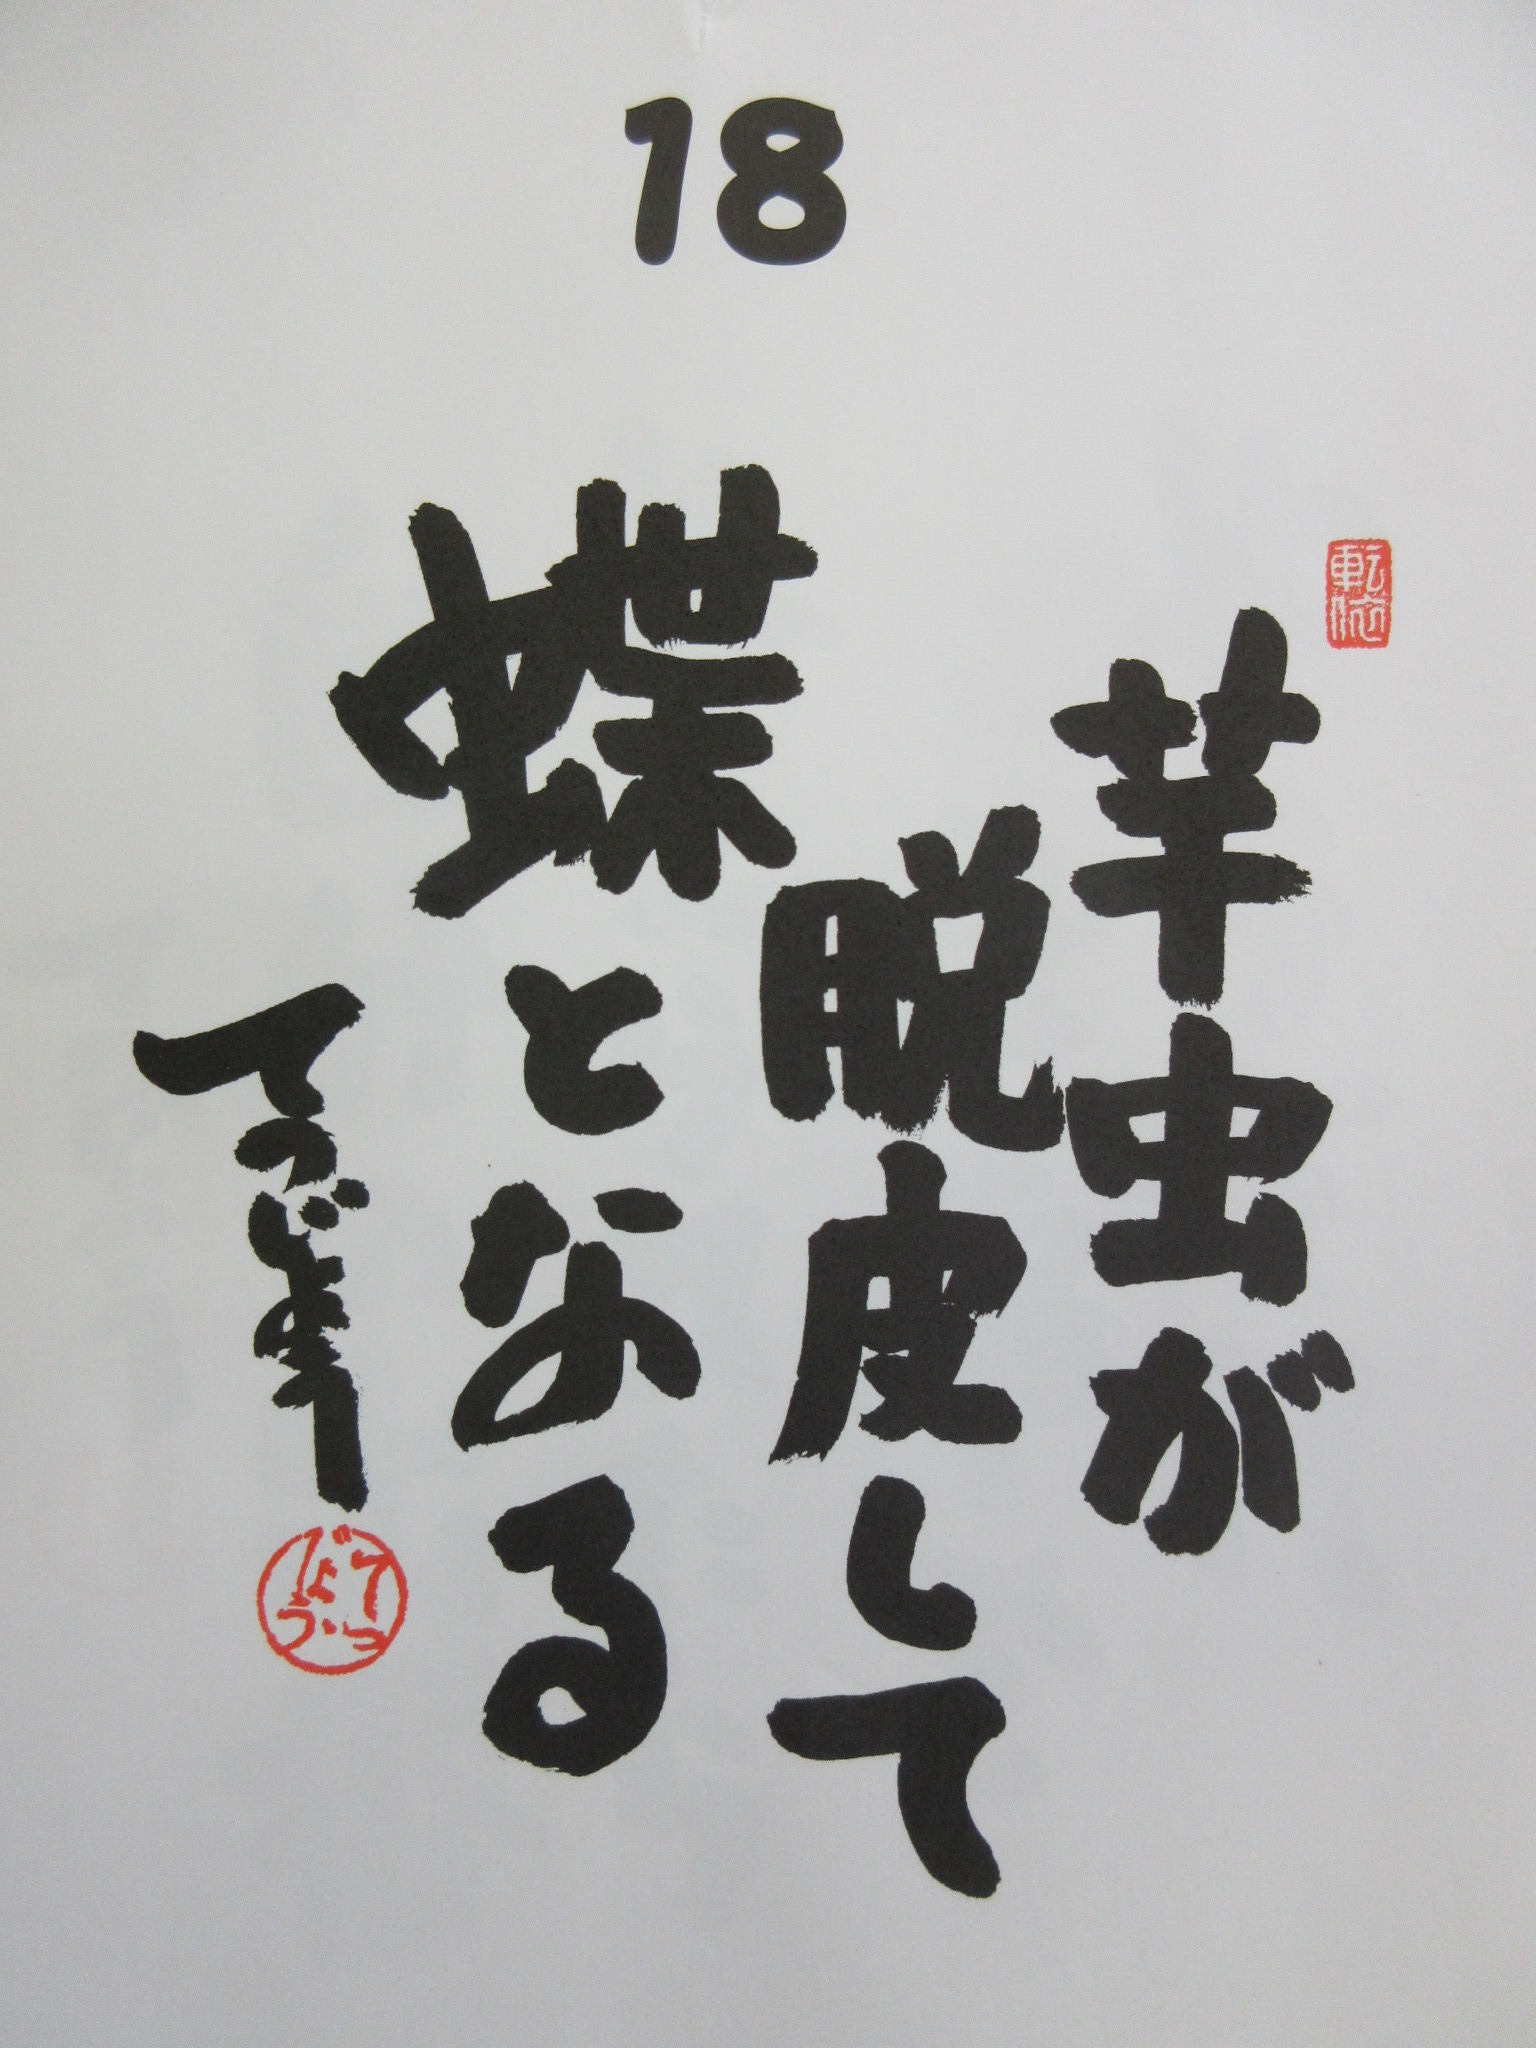 18
転依
芋虫が
脱皮して
蝶となる
てつじょう
てつじょう